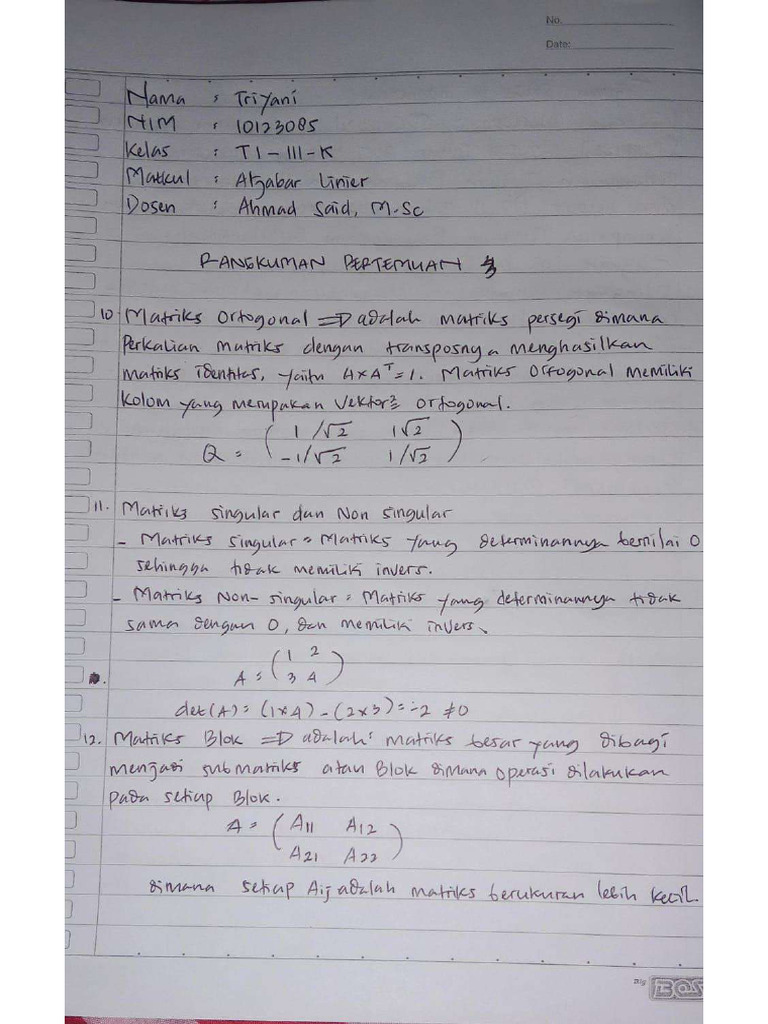 No.
Date:
Nama : Triyani
NIM : 10123085
Kelas : TI - III - K
Matkul : Aljabar Linier
Dosen : Ahmad Said, M.Sc
RANGKUMAN PERTEMUAN 3
10 Matriks Ortogonal => adalah matriks persegi dimana
Perkalian matriks dengan transposnya menghasilkan
matriks identitas, yaitu A×Aᵀ=1. Matriks Ortogonal memiliki
kolom yang merupakan Vektor² ortogonal.
Q = ( 1/√2 1√2
-1/√2 1/√2 )
11. Matriks singular dan Non singular
- Matriks singular = Matriks yang determinannya bernilai 0
sehingga tidak memiliki invers.
- Matriks Non-singular = Matriks yang determinannya tidak
sama dengan 0, dan memiliki invers.
A = ( 1 2
3 4 )
det(A) = (1×4) - (2×3) = -2 ≠0
12. Matriks Blok => adalah: matriks besar yang dibagi
menjadi submatriks atau Blok dimana operasi dilakukan
pada setiap Blok.
A = ( A11 A12
A21 A22 )
dimana setiap Aij adalah matriks berukuran lebih kecil.